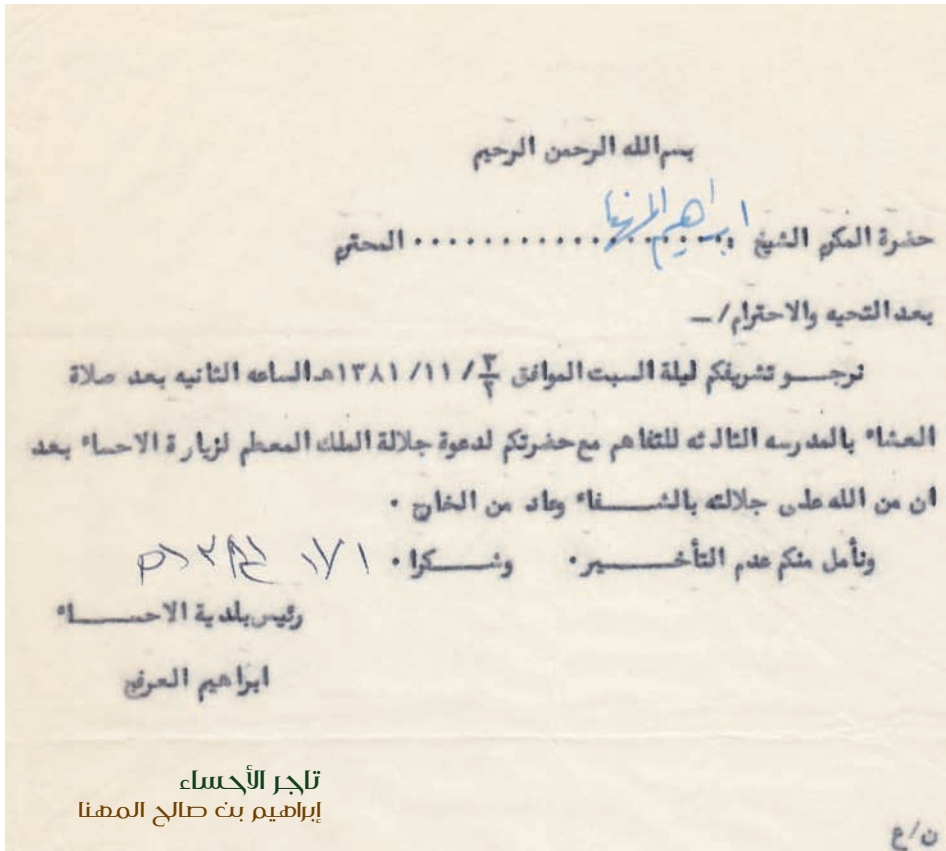 بسم الله الرحمن الرحيم
حضرة المكرم الشيخ ابراهيم المهنا .................. المحترم
بعد التحيه والاحترام/ ــ
نرجـــو تشريفكم ليلة السبت الموافق ٢/٣ / ١١/ ١٣٨١هـ الساعه الثانيه بعد صلاة
العشاء بالمدرسه الثالثه للتفاهم مع حضرتكم لدعوة جلالة الملك المعظم لزيارة الاحساء بعد
ان من الله على جلالته بالشـــفاء وعاد من الخارج ٠
ونأمل منكم عدم التأخـــــير٠ وشـــكرا ٠
رئيس بلدية الاحســـاء
ابراهيم العرفج
تاجر الأحساء
إبراهيم بن صالح المهنا
ن/ع